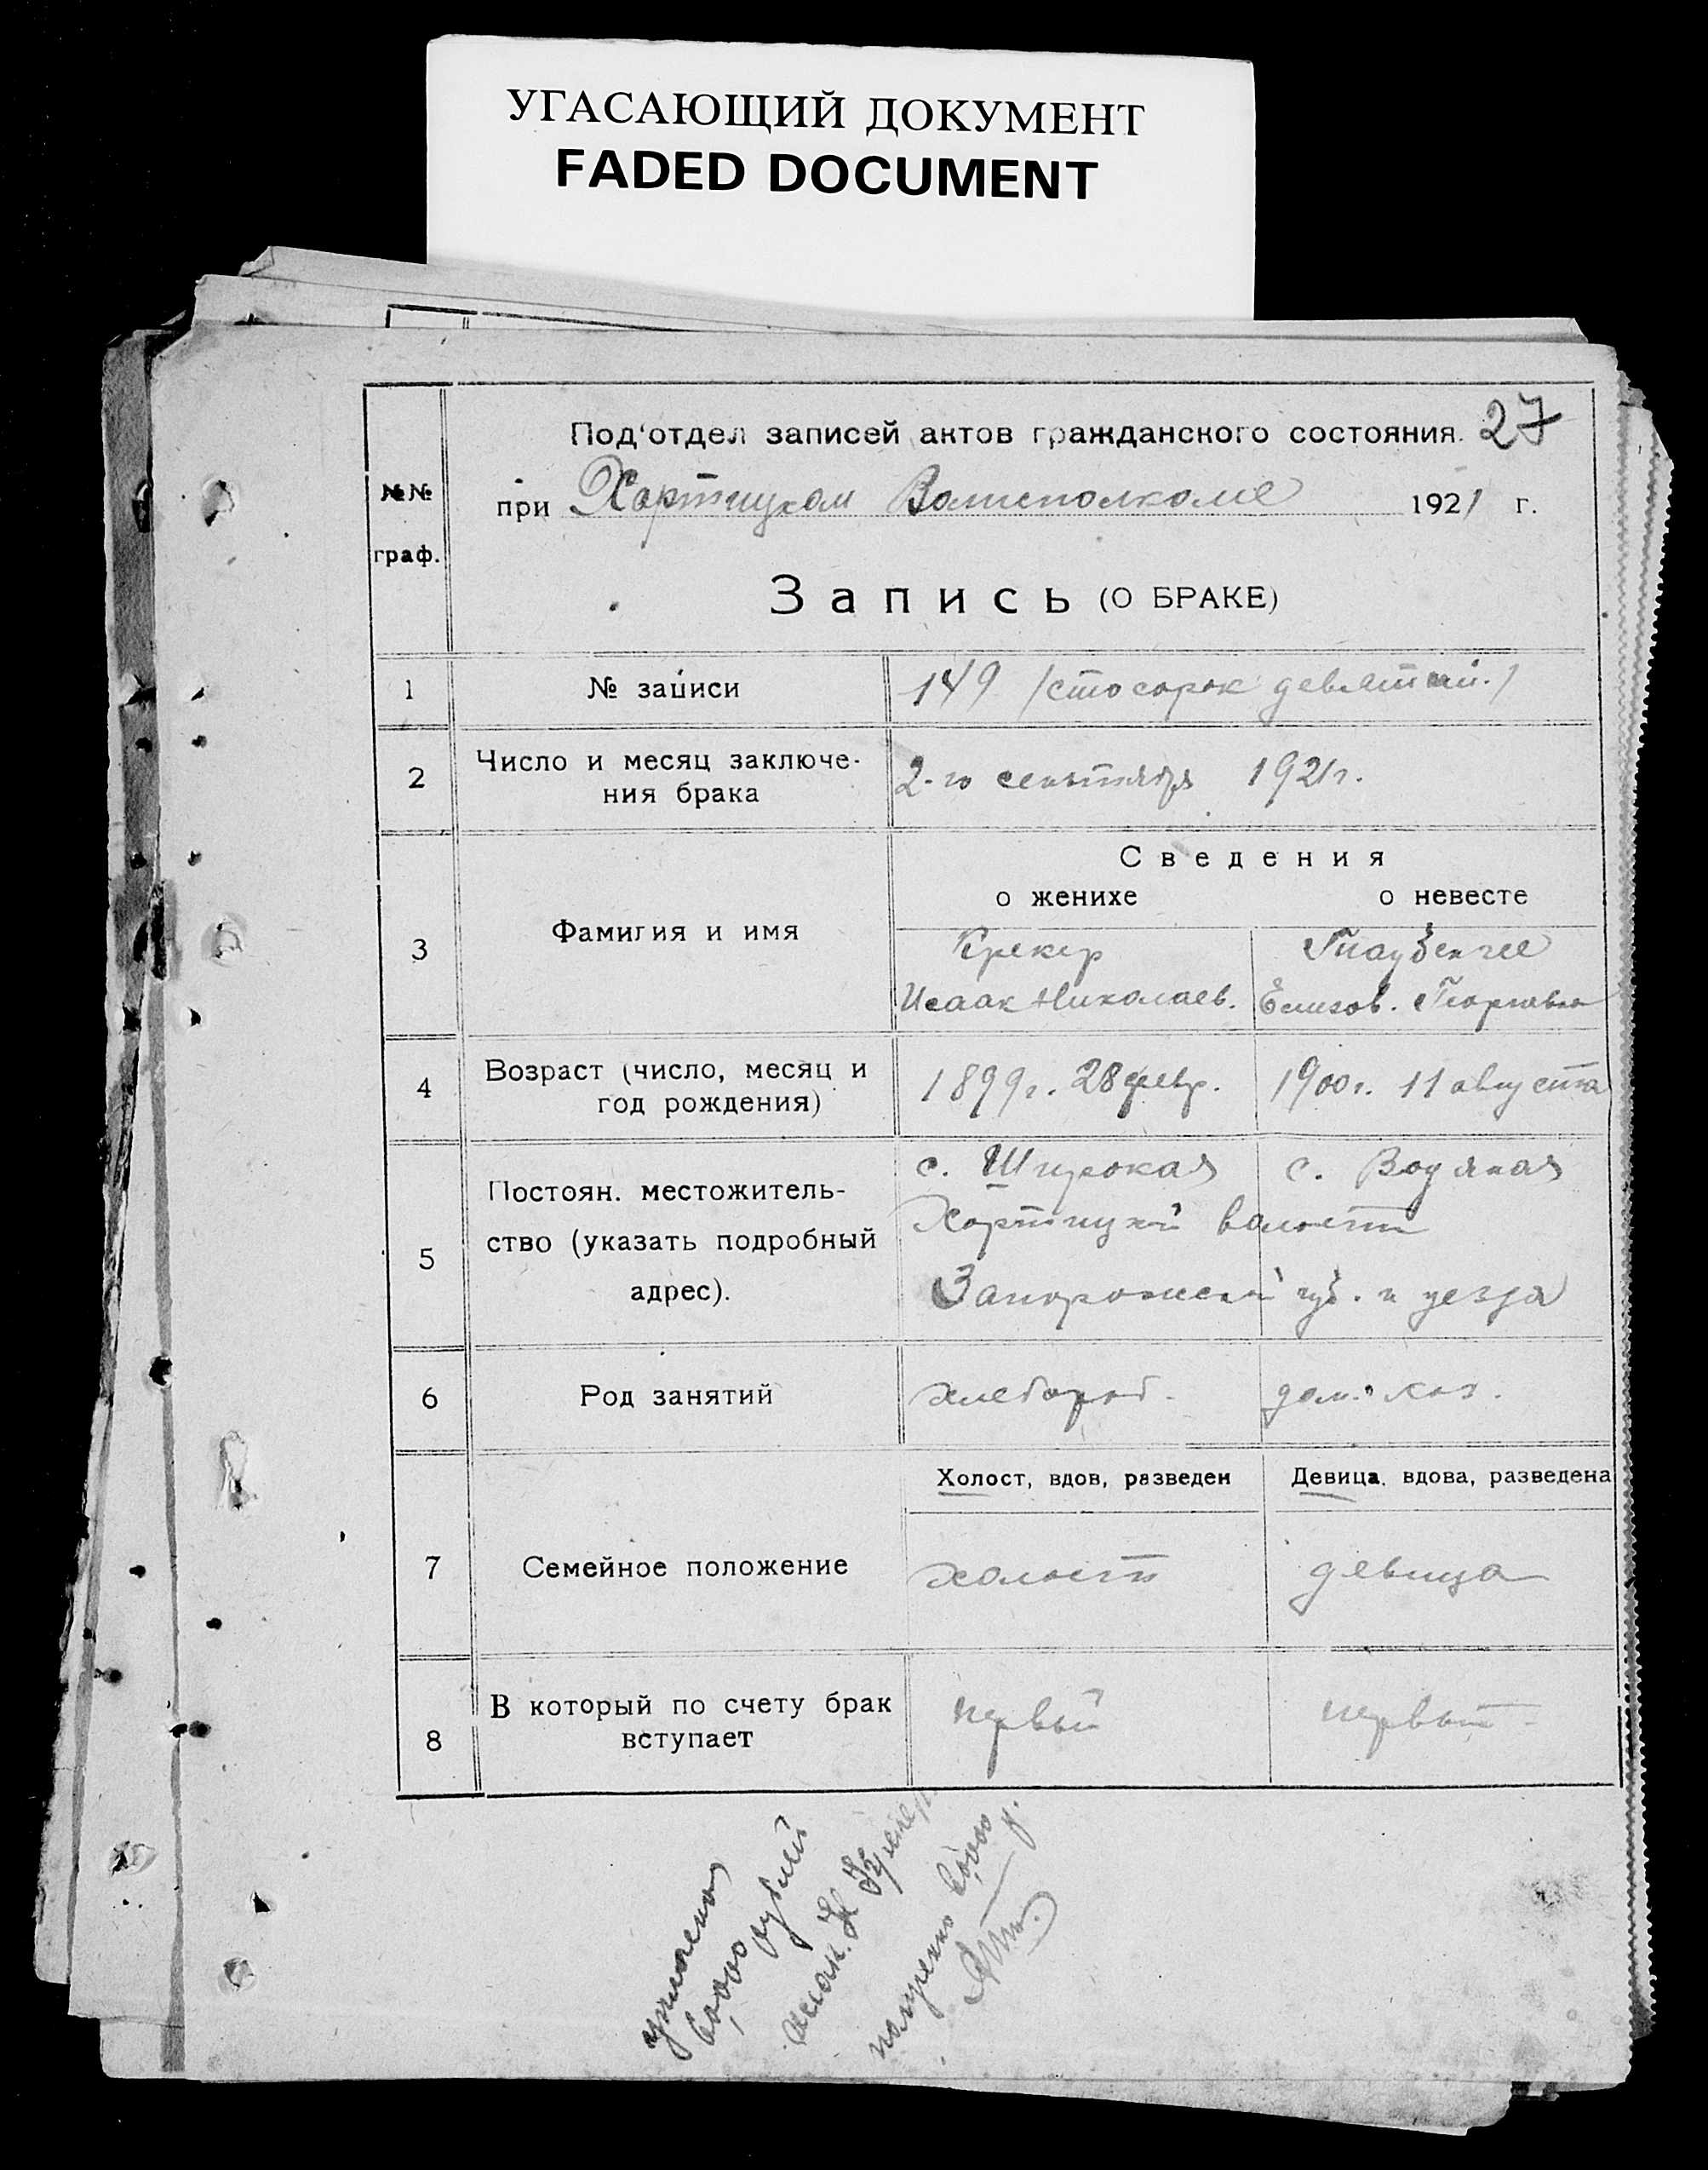 УГАСАЮЩИЙ ДОКУМЕНТ
FADED DOCUMENT
27
Под'отдел записей актов гражданского состояния.
№№ граф.
при Хортицком Волисполкоме 1921 г.
Запись (О БРАКЕ)
1 № записи 149 (сто сорок девятый.)
2 Число и месяц заключе-
ния брака 2-го сентября 1921 г.
Сведения
о женихе о невесте
3 Фамилия и имя Крекер
Исаак Николаев. Елизав. Георгиевна
4 Возраст (число, месяц и
год рождения) 1899 г. 28 февр. 1900 г. 11 августа
5 Постоян. местожитель-
ство (указать подробный
адрес).
с. Широкая с. Водяная
Хортицкой волости
Запорожской губ. и уезда
6 Род занятий хлебороб. дом. хоз.
Холост, вдов, разведен Девица, вдова, разведена
7 Семейное положение холост девица
8 В который по счету брак
вступает первый первый
уплочено
6,000 рублей
Исаак. Н Крекер
получено 6,000 р.